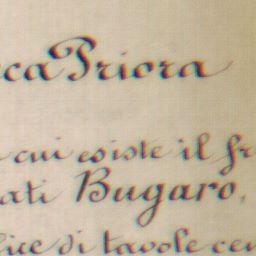 cca Priora
cui esiste il fr
ati Bugaro,
lice di tavole cen